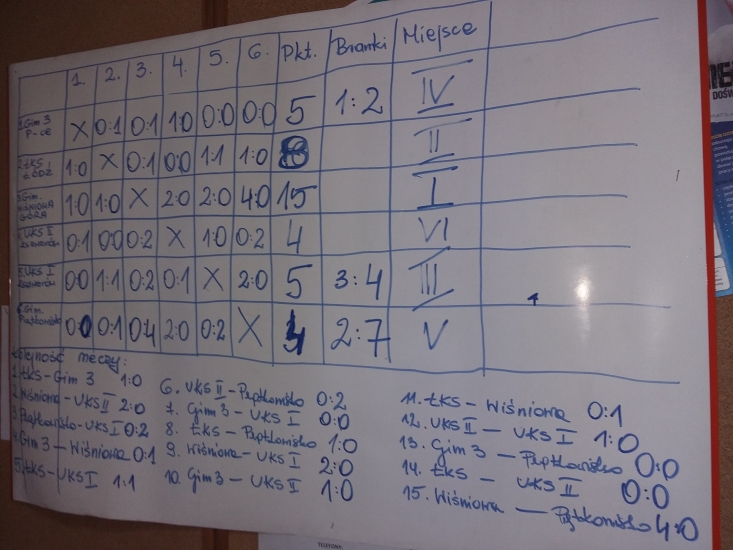 1. 2. 3. 4. 5. 6. Pkt. Bramki Miejsce
1. Gim 3 P-ce X 0:1 0:1 1:0 0:0 0:0 5 1:2 IV
2. ŁKS ŁÓDŹ 1:0 X 0:1 0:0 1:1 1:0 8 II
3. Gim. WIŚNIOWA GÓRA 1:0 1:0 X 2:0 2:0 4:0 15 I
4. UKS II 0:1 0:0 0:2 X 1:0 0:2 4 VI
5. UKS I 0:0 1:1 0:2 0:1 X 2:0 5 3:4 III
6. Gim. 0:0 0:1 0:4 2:0 0:2 X 4 2:7 V
Kolejność meczy:
1. ŁKS - Gim 3 1:0
2. Wiśniowa - UKS II 2:0
3. Piątkowisko - UKS I 0:2
4. Gim 3 - Wiśniowa 0:1
5. ŁKS - UKS I 1:1
6. UKS II - Piątkowisko 0:2
7. Gim 3 - UKS I 0:0
8. ŁKS - Piątkowisko 1:0
9. Wiśniowa - UKS I 2:0
10. Gim 3 - UKS II 1:0
11. ŁKS - Wiśniowa 0:1
12. UKS II - UKS I 1:0
13. Gim 3 - Piątkowisko 0:0
14. ŁKS - UKS II 0:0
15. Wiśniowa - Piątkowisko 4:0